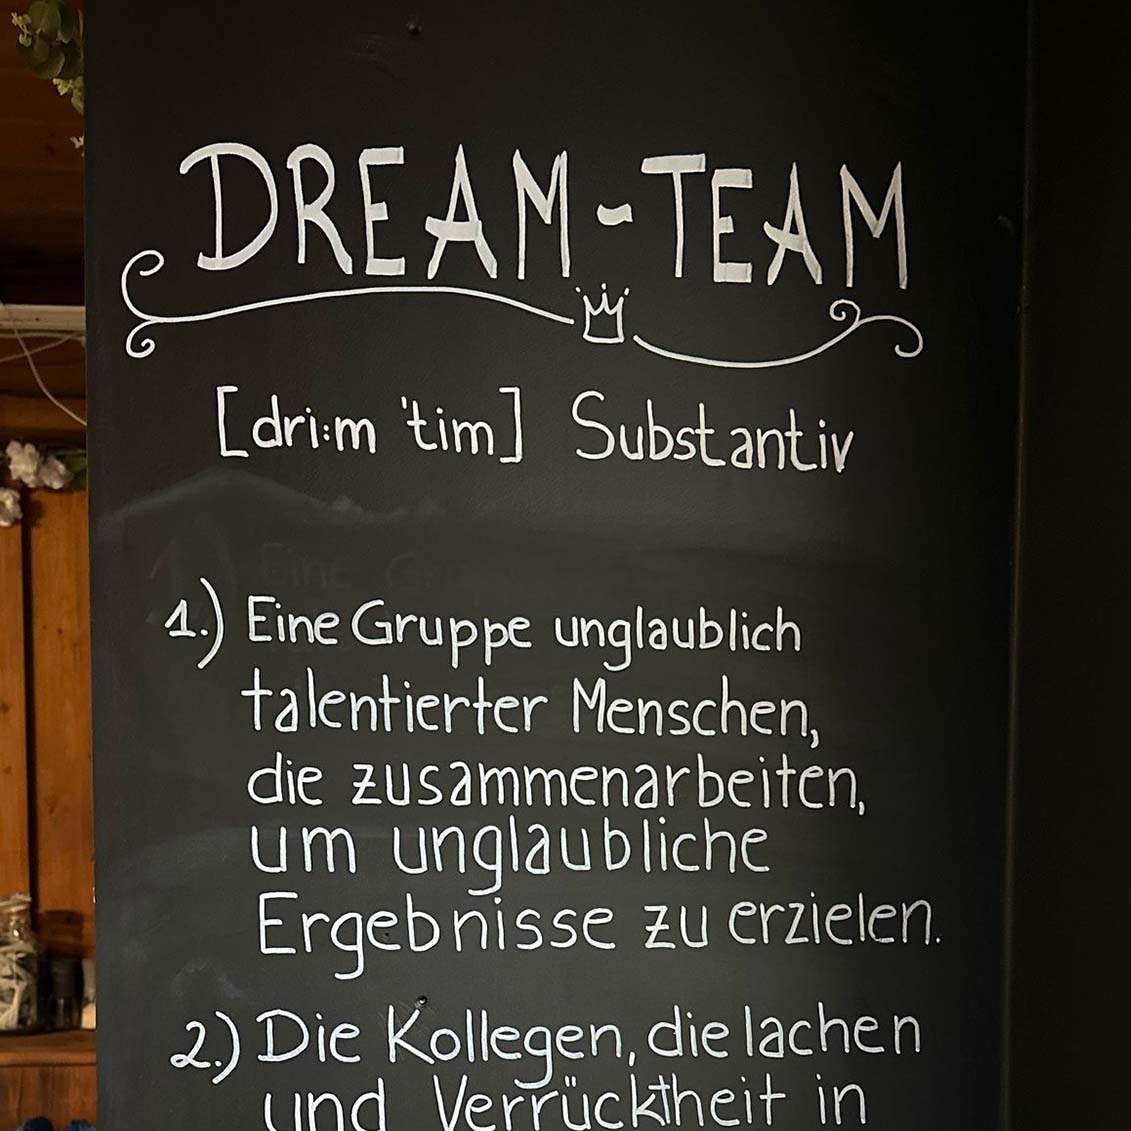 DREAM-TEAM
[dri:m 'tim] Substantiv
1.) Eine Gruppe unglaublich
talentierter Menschen,
die zusammenarbeiten,
um unglaubliche
Ergebnisse zu erzielen.
2.) Die Kollegen, die lachen
und Verrücktheit in